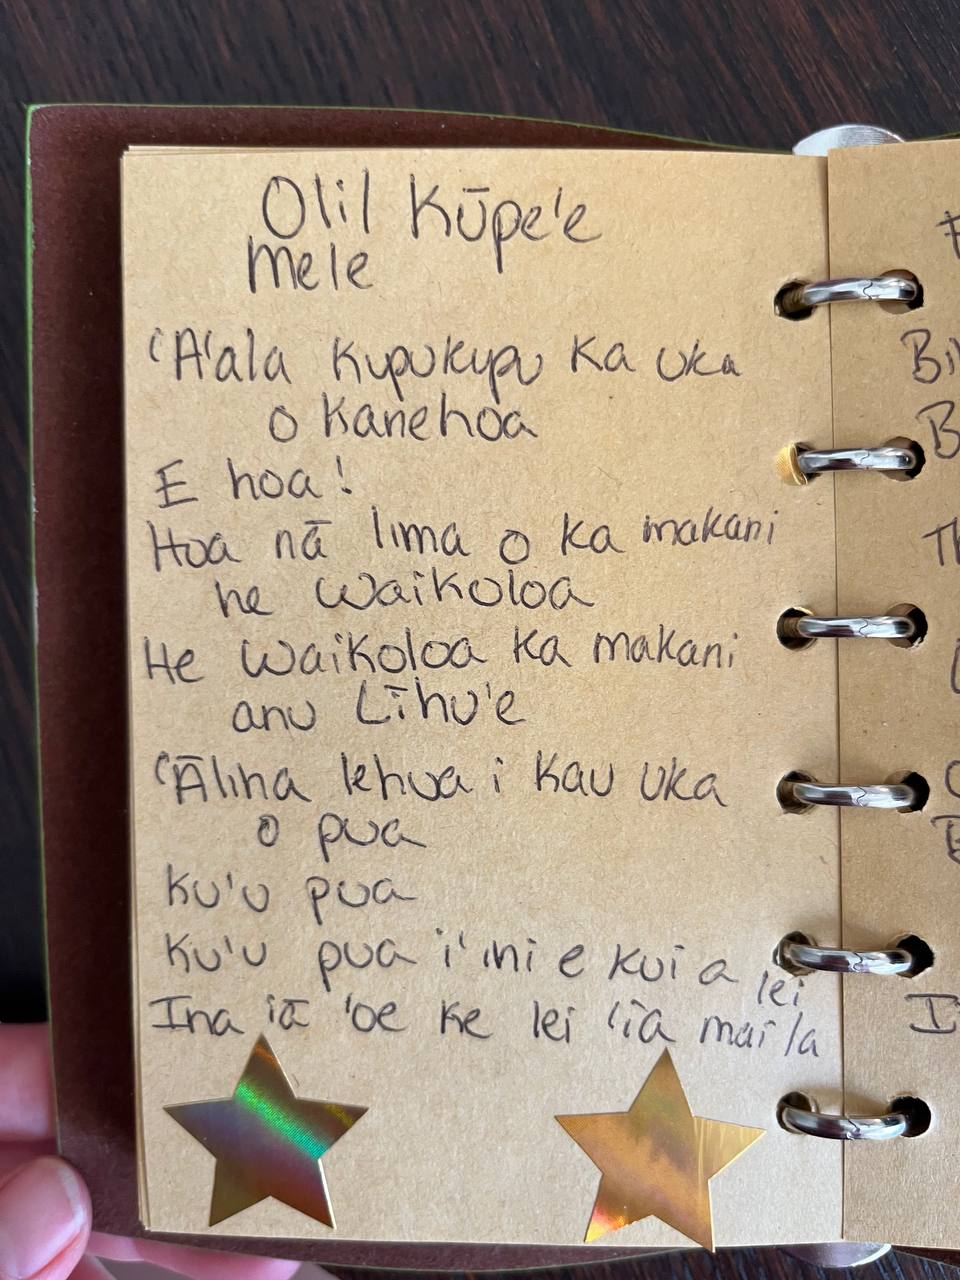 Olil Kūpe'e
Mele
'A'ala Kupukupu Ka uka
o Kanehoa
E hoa!
Hoa nā lima o ka makani
he Waikoloa
He Waikoloa ka makani
anu Līhu'e
'Āliha lehua i Kau uka
o pua
Ku'u pua
Ku'u pua i'ini e kui a lei
Ina iā 'oe ke lei 'ia mai la
Bi
B
Th
I